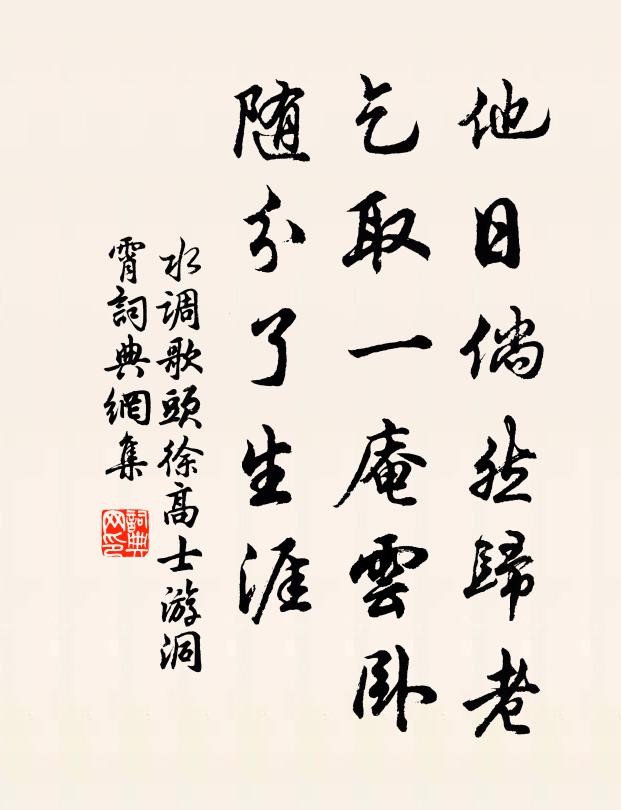 他日倘然歸老
乞取一庵雲卧
随分了生涯
水調歌頭徐高士游洞
霄詞典網集
詞典网印